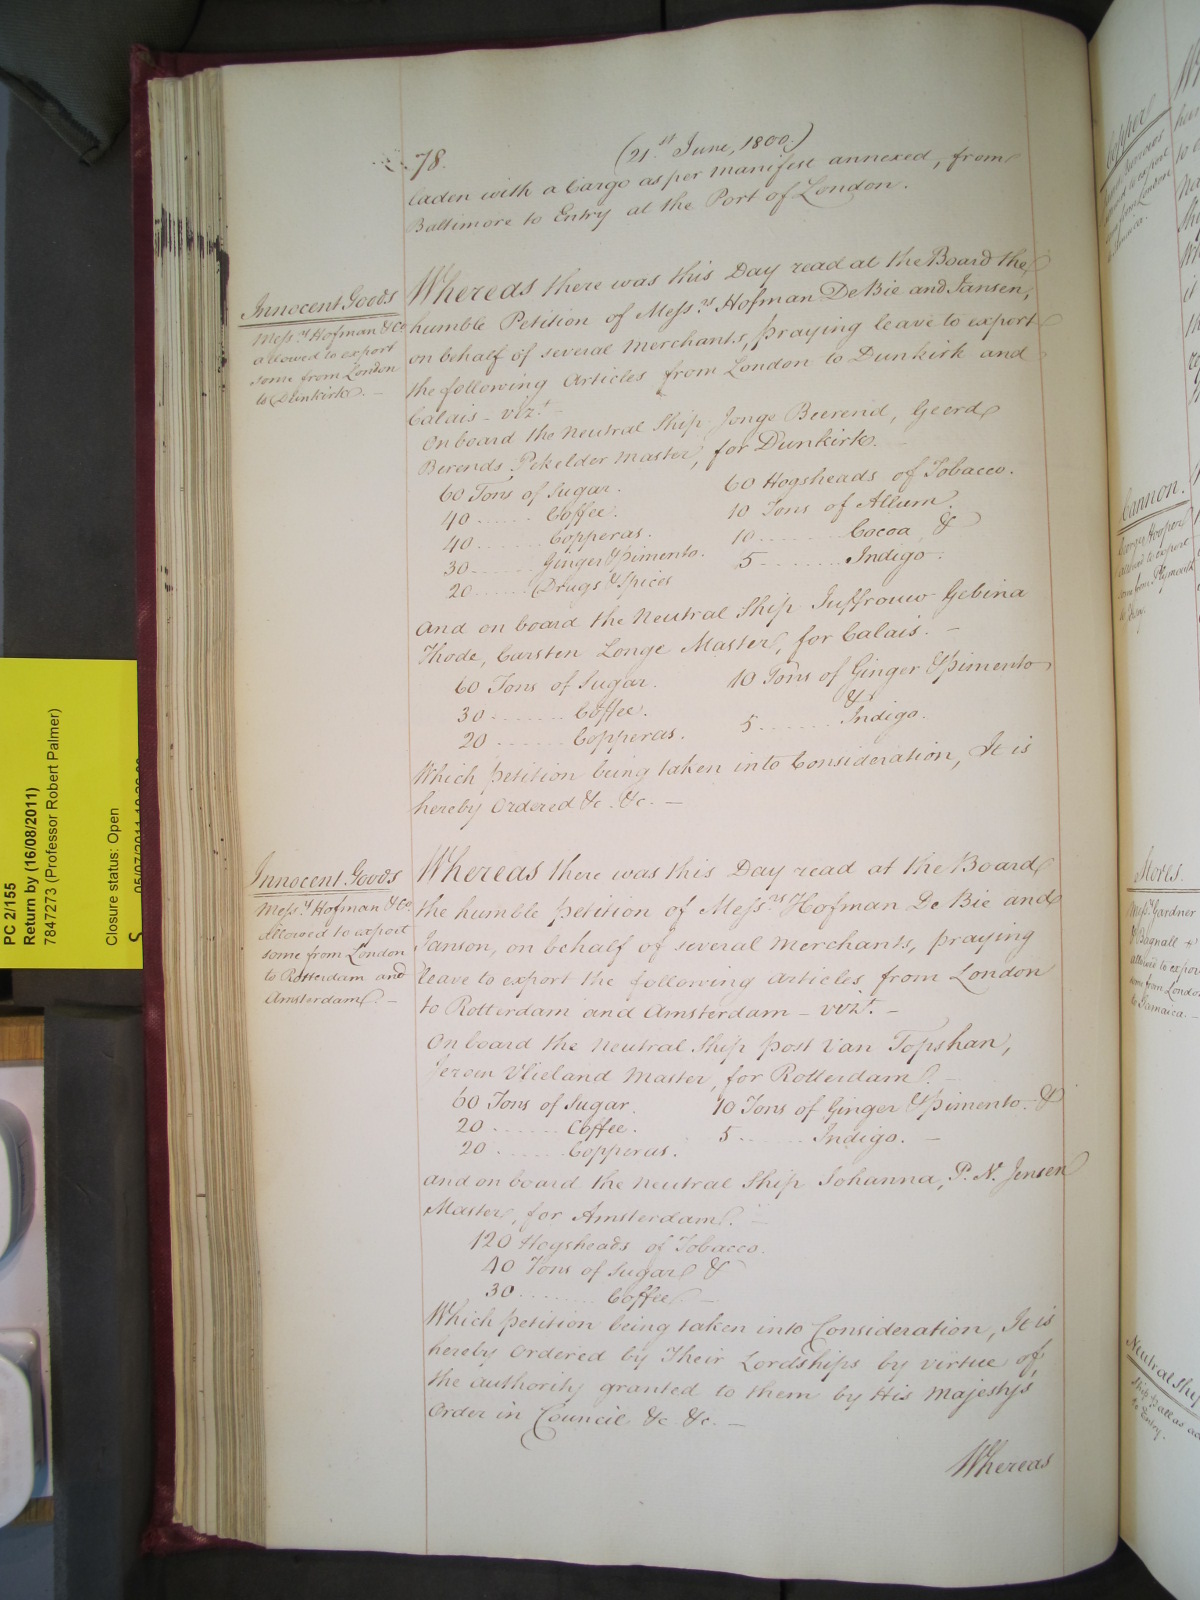 78.
(21st June, 1800.)
laden with a Cargo as per manifest annexed, from
Baltimore to Entry at the Port of London.
Innocent Goods
Messrs Hofman & Co
allowed to export
some from London
to Dunkirk. —
Whereas there was this Day read at the Board the
humble Petition of Messrs Hofman De Bie and Jansen,
on behalf of several Merchants, praying leave to export
the following Articles from London to Dunkirk and
Calais — vizt —
On board the Neutral Ship Jonge Beerend, Geerd
Berends Pekelder Master, for Dunkirk. —
60 Tons of Sugar.
40 ...... Coffee.
40 ...... Copperas.
30 ...... Ginger & Pimento.
20 ...... Drugs & Spices
60 Hogsheads of Tobacco.
10 Tons of Allum.
10 ...... Cocoa, &
5 ...... Indigo.
And on board the Neutral Ship Juffrouw Gebina
Thode, Carsten Longe Master, for Calais. —
60 Tons of Sugar.
30 ...... Coffee.
20 ...... Copperas.
10 Tons of Ginger & Pimento
&
5 ...... Indigo.
Which petition being taken into Consideration, It is
hereby Ordered &c. &c. —
Innocent Goods
Messrs Hofman & Co.
allowed to export
some from London
to Rotterdam and
Amsterdam. —
Whereas there was this Day read at the Board
the humble petition of Messrs Hofman De Bie and
Janson, on behalf of several Merchants, praying
leave to export the following Articles from London
to Rotterdam and Amsterdam — vizt. —
On board the Neutral Ship Post van Topshan,
Jeroen Vlieland Master, for Rotterdam. —
60 Tons of Sugar.
20 ...... Coffee.
20 ...... Copperas.
10 Tons of Ginger & Pimento. &
5 ...... Indigo. —
And on board the Neutral Ship Johanna, P. N. Jensen
Master, for Amsterdam. —
120 Hogsheads of Tobacco.
40 Tons of Sugar &
30 ...... Coffee. —
Which petition being taken into Consideration, It is
hereby Ordered by Their Lordships by virtue of
the authority granted to them by His Majesty's
Order in Council &c. &c. —
Whereas
PC 2/155
Return by (16/08/2011)
7847273 (Professor Robert Palmer)
Closure status: Open
Copper
Cannon.
George Hooper
allowed to export
some from Plymouth
Stores.
Messrs Gardner
& Bagnall
allowed to expor
some from London
to Jamaica. —
Neutral Ship
to Entry.